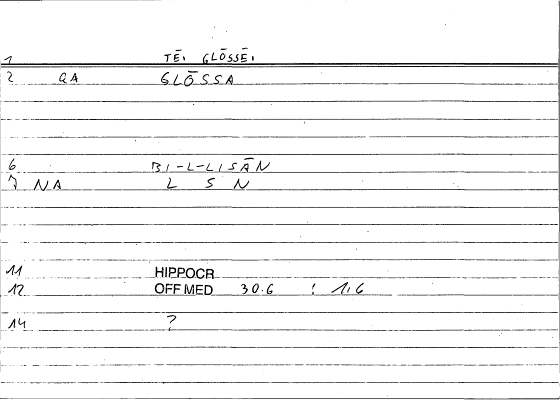 1 TĒI GLŌSSĒI
2 QA GLŌSSA
6 BI-L-LISĀN
7 NA L S N
11 HIPPOCR
12 OFF MED 30.6 ! 1,6
14 ?